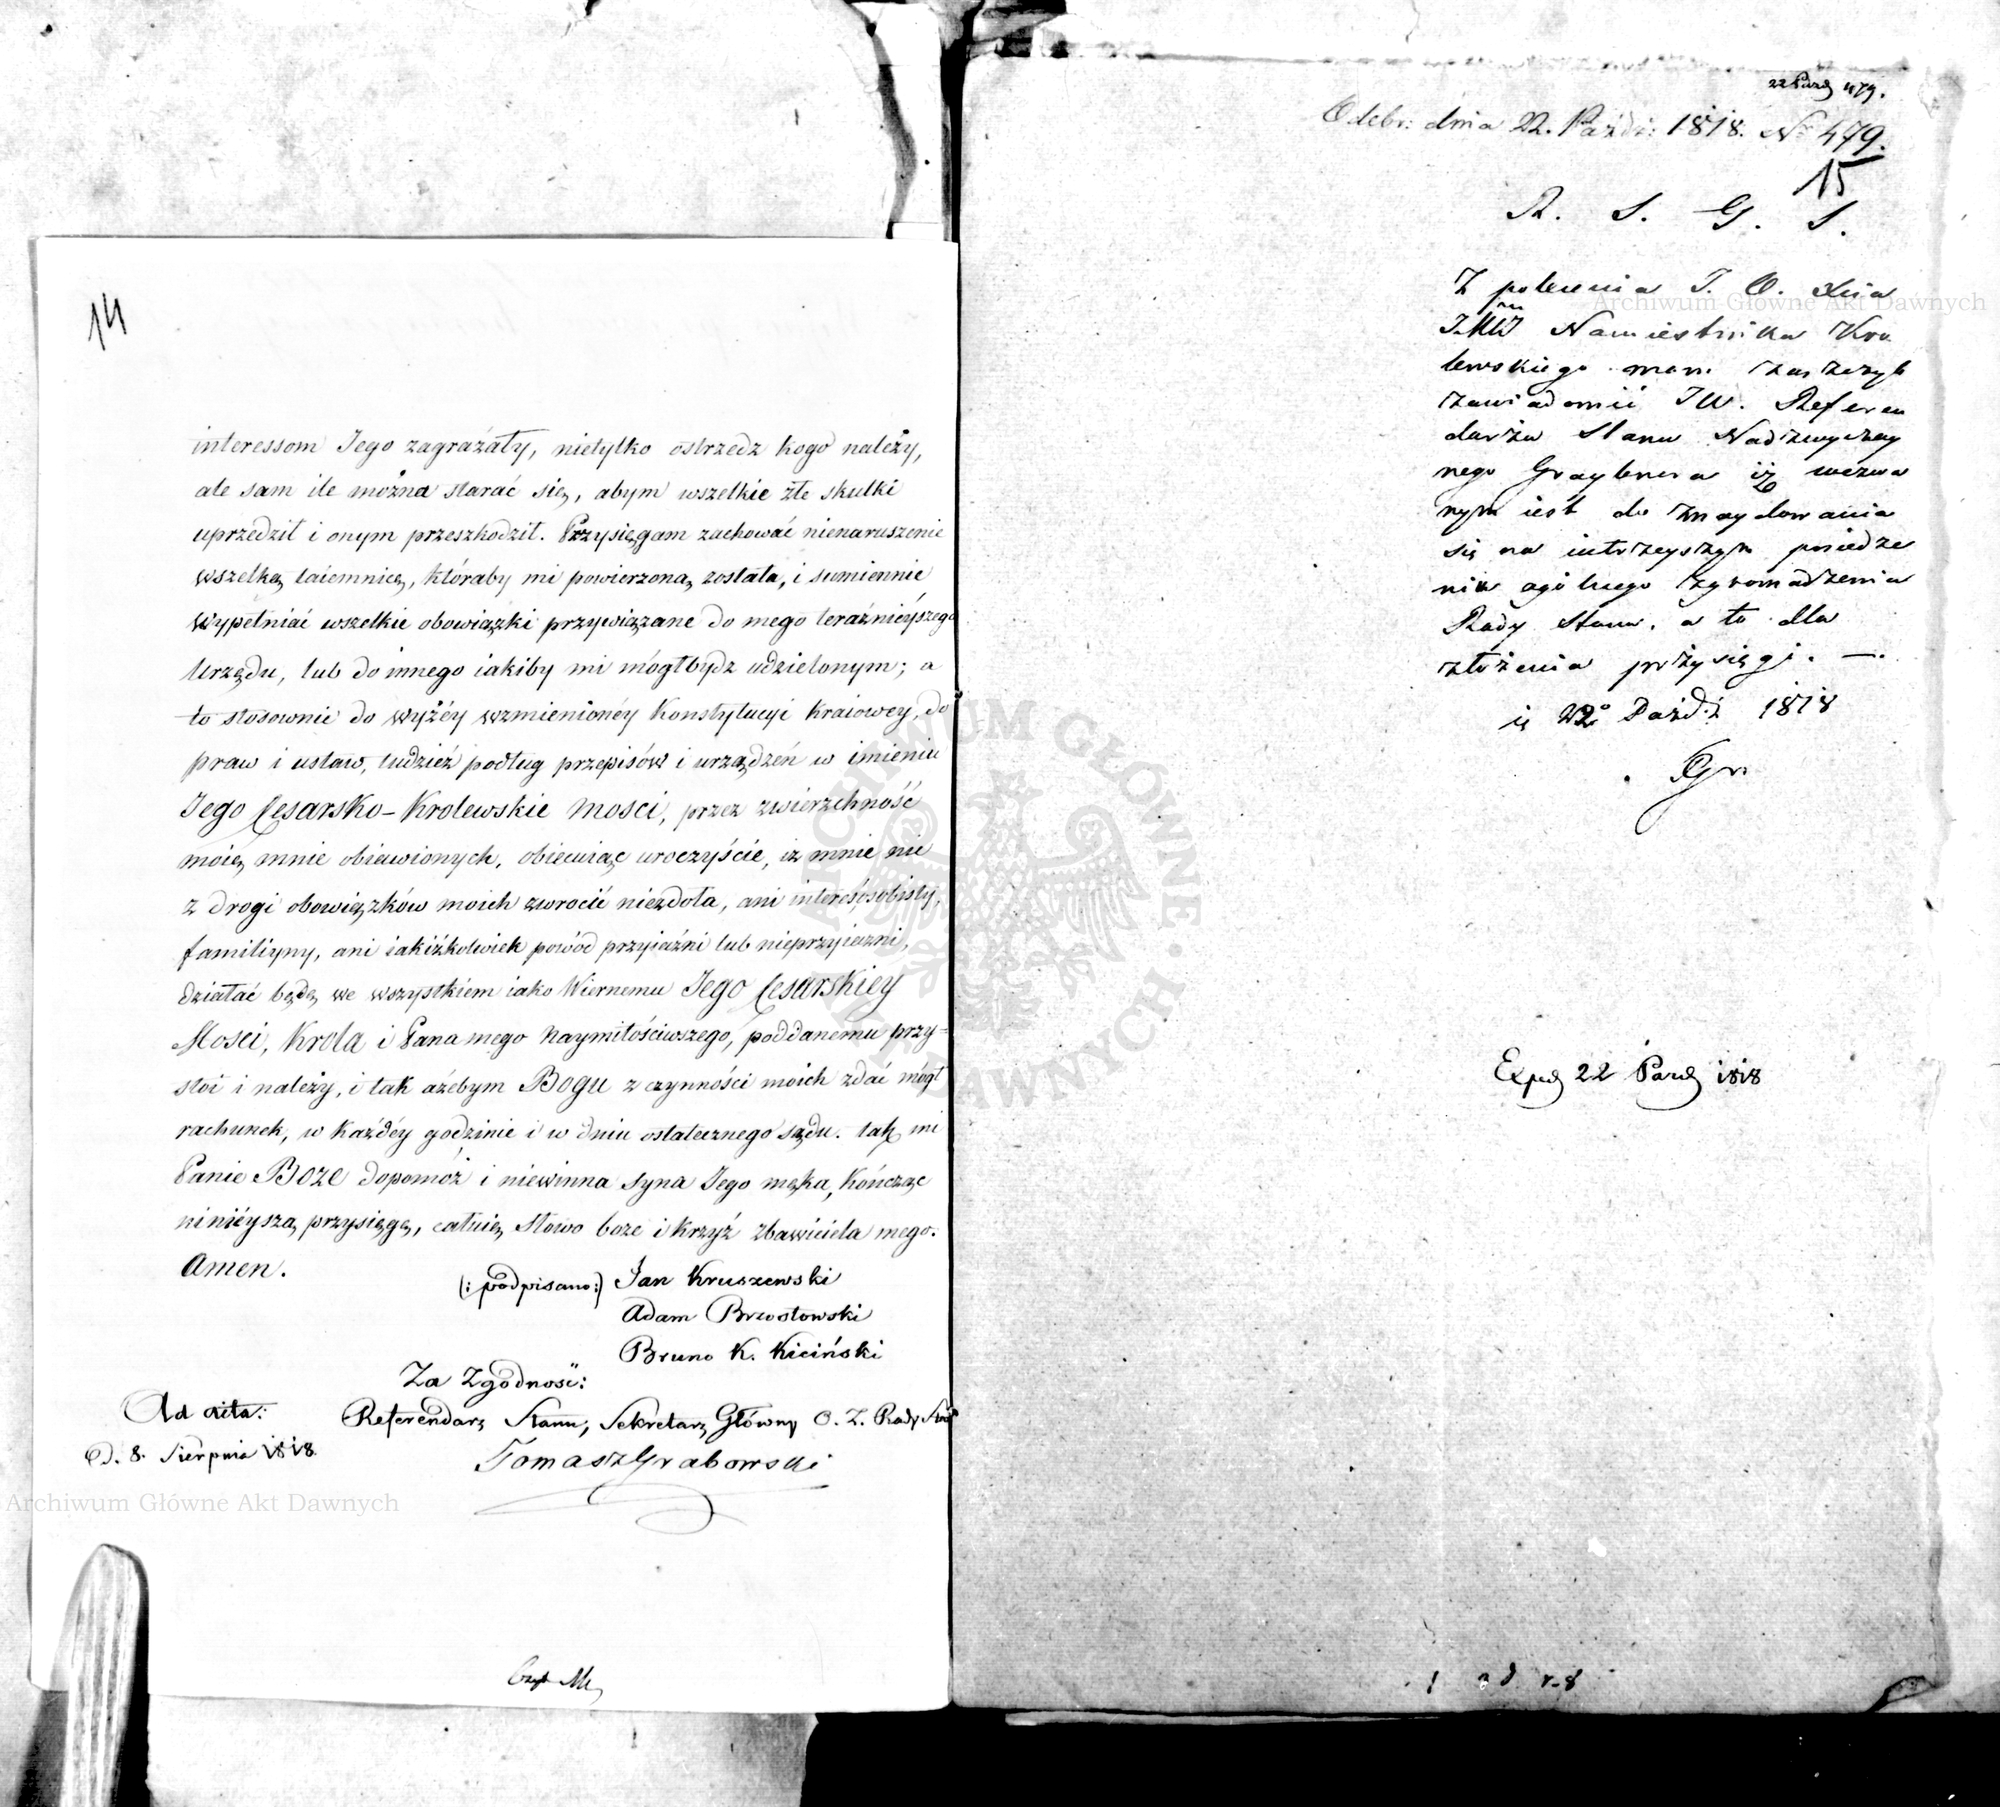 14
interessom Jego zagrażały, nietylko ostrzedz kogo należy,
ale sam ile można starać się, abym wszelkie złe skutki
uprzedził i onym przeszkodził. Przysięgam zachować nienaruszenie
wszelką taiemnicę, któraby mi powierzoną została, i sumiennie
wypełniać wszelkie obowiązki przywiązane do mego teraźnieyszego
Urzędu, lub do innego iakiby mi mógłbydz udzielonym; a
to stosownie do wyżéy wzmienionéy Konstytucyi Kraiowey, do
praw i ustaw, tudzież podług przepisów i urządzeń w imieniu
Jego Cesarsko-Krolewskie Mosci, przez zwierzchność
moię mnie obiawionych, obiecuiąc uroczyście, iz mnie nic
z drogi obowiązków moich zwrocić niezdoła, ani interes osobisty,
familiyny, ani iakiżkolwiek powód przyiaźni lub nieprzyiazni,
działać będę we wszystkiem iako Wiernemu Jego Cesarskiey
Mosci, Krola i Pana mego Naymiłościwszego, poddanemu przy-
stoi i należy, i tak ażebym Bogu z czynności moich zdać mógł
rachunek, w każdéy godzinie i w dniu ostatecznego sądu. tak mi
Panie Boze dopomóż i niewinna Syna Jego męka, Kończąc
ninieyszą przysięgę, całuię Słowo boze i Krzyż zbawiciela mego.
Amen.
(: podpisano:) Jan Kruszewski
Adam Brzostowski
Bruno K. Kiciński
Za Zgodność:
Referendarz Stanu, Sekretarz Główny O. Z. Rady Stan
Tomasz Grabowski
Ad acta:
D. 8. Sierpnia 1818.
Archiwum Główne Akt Dawnych
22 Pazd 479.
Odebr: dnia 22. Paźdz: 1818. Nr 479.
15
R. S. G. S.
Z polecenia J. O. Xcia
Archiwum Główne Akt Dawnych
JMCi Namiestnika Kro
lewskiego mam zaszczyt
zawiadomić JW. Referen
darza Stanu Nadzwyczay
nego Graybnera iż wezwa
nym iest do znaydowania
się na iutrzeyszym posiedze
niu ogólnego zgromadzenia
Rady Stanu, a to dla
złożenia przysięgi. —.
22 Paźdz 1818
Gr.
Exped 22 Pazd 1818
ARCHIWUM GŁÓWNE AKT DAWNYCH